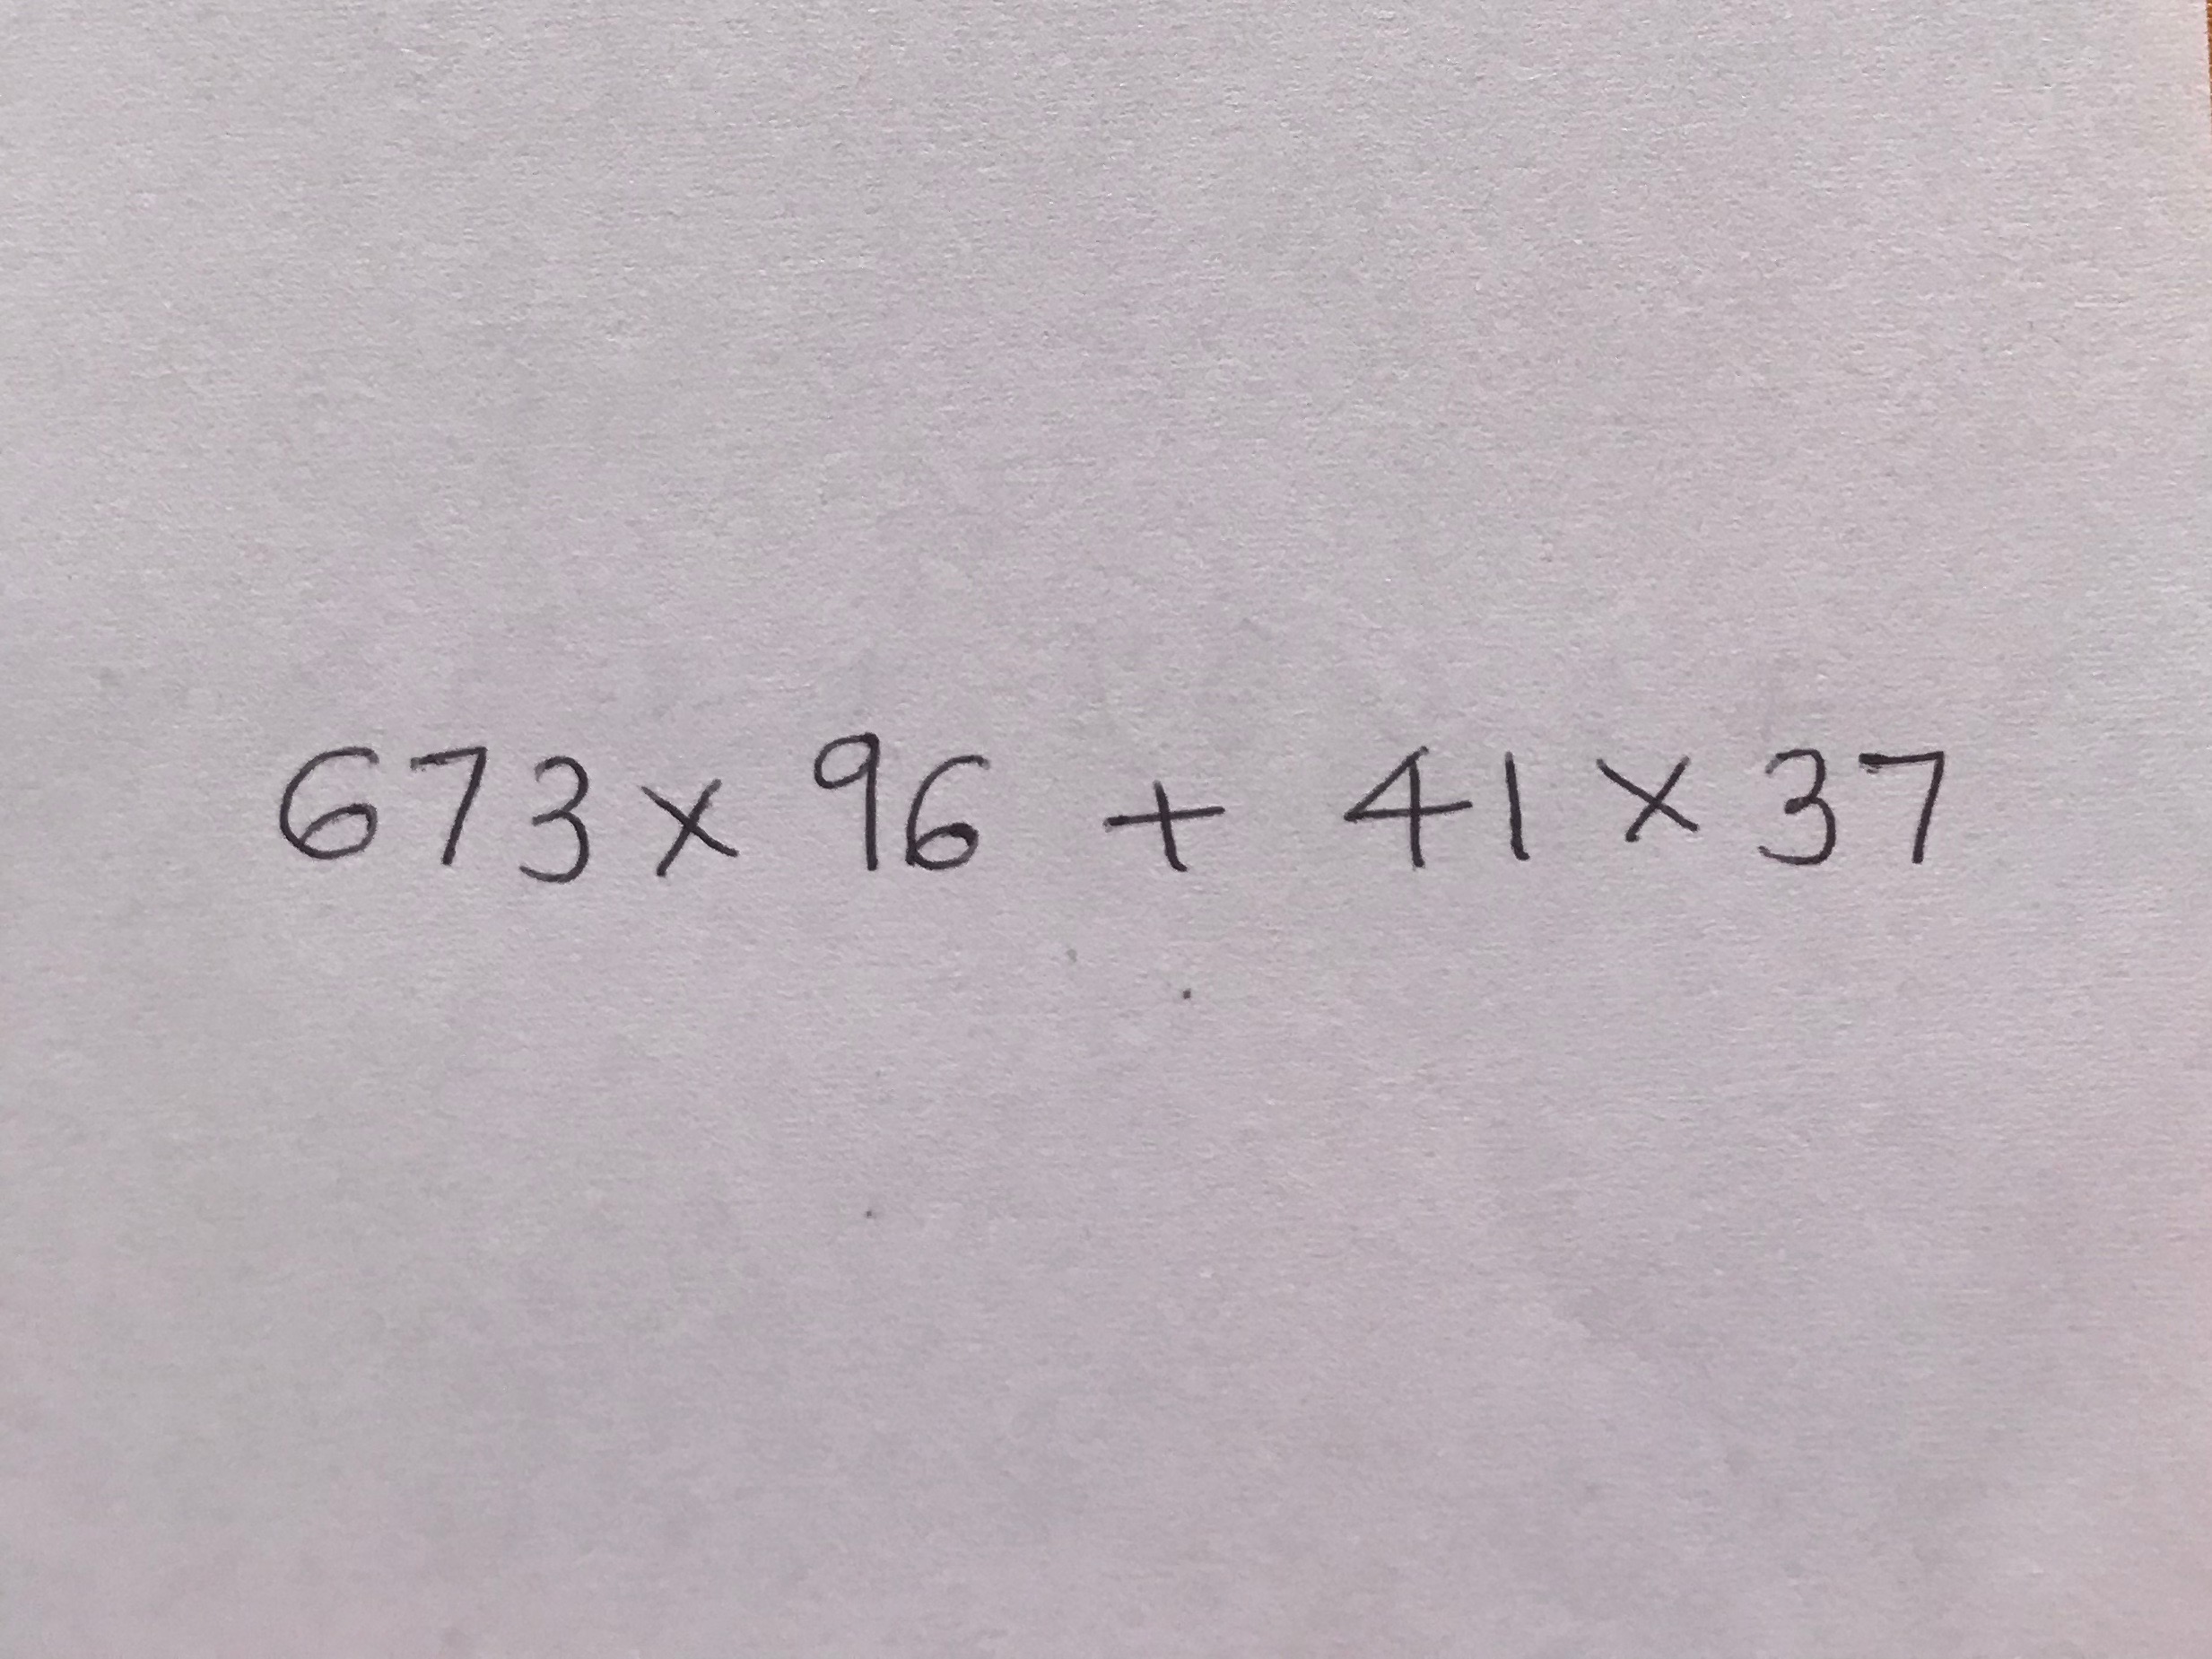 673 x 96 + 41 x 37